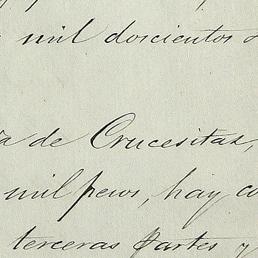 mil doscientos
a de Crucesitas,
mil pesos, hay co
terceras partes y